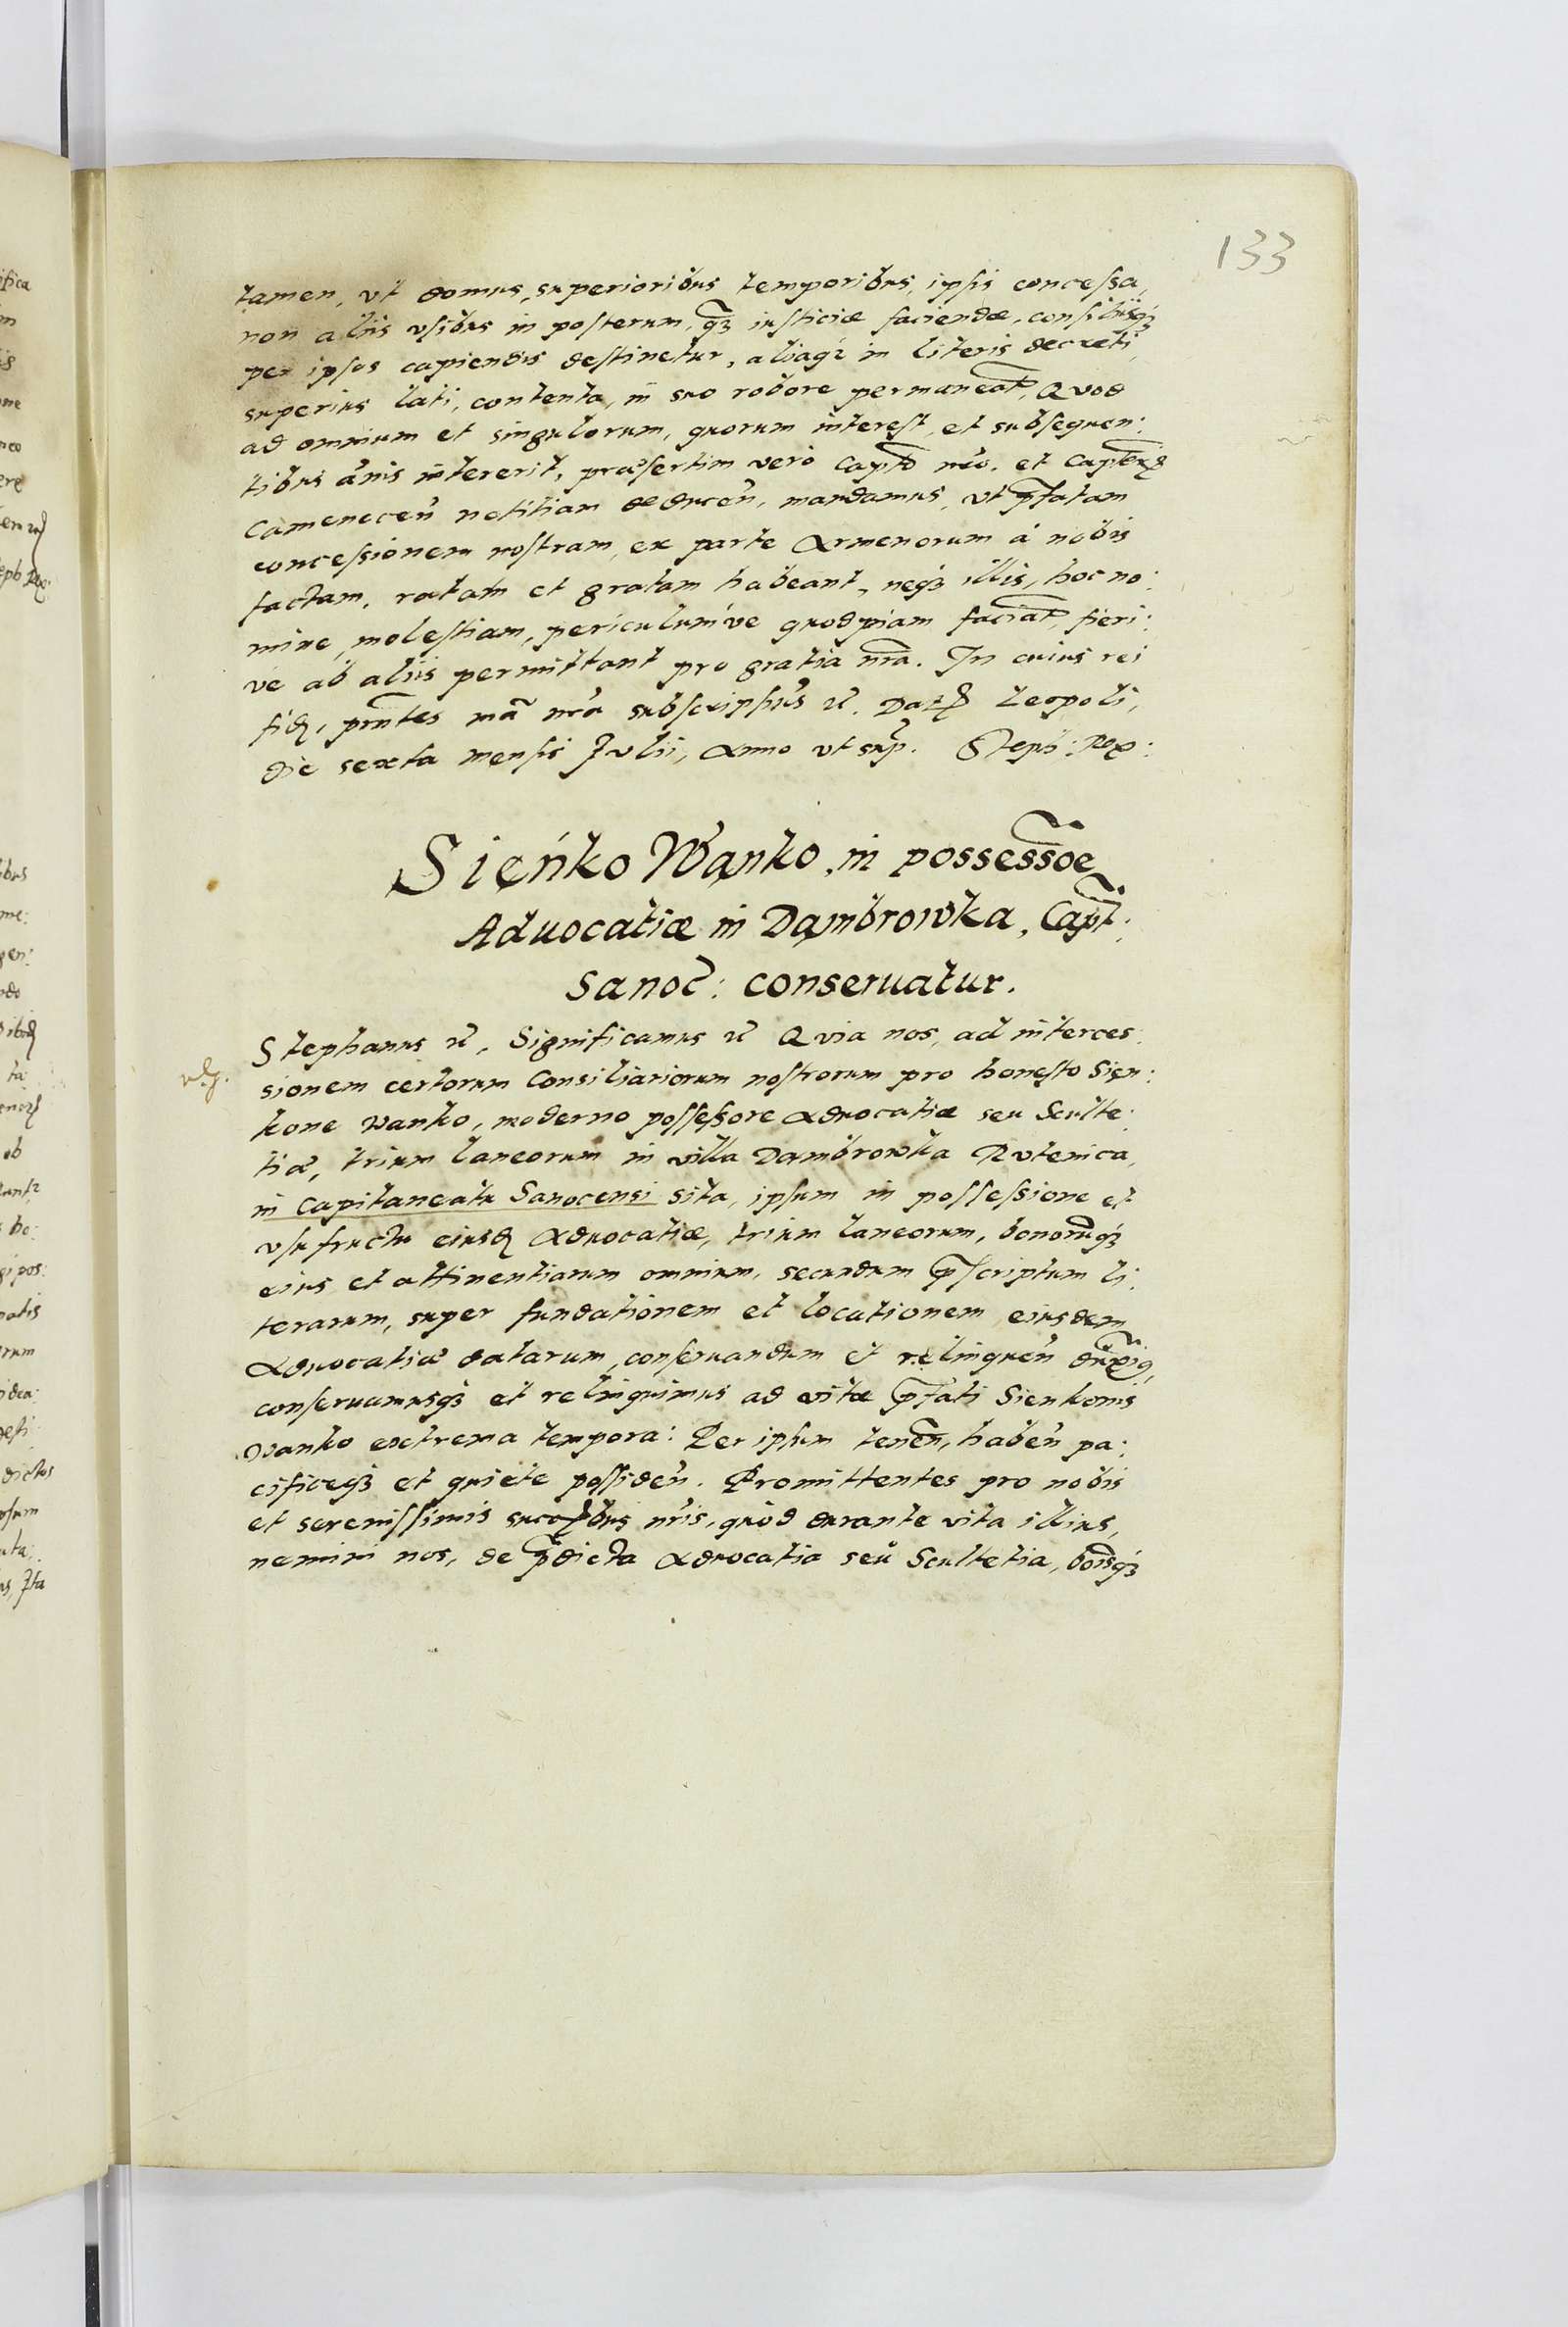 133
tamen, vt domus, superioribus temporibus, ipsis concessa,
non aliis vsibus in posterum, qz iusticiæ faciendæ, consiliisqz
per ipsos capiendis destinetur, aliaqz in literis decreti
superius lati, contenta, in suo robore permaneāt, Quod
ad omnium et singulorum, quorum interest, et subsequen:
tibus ānis intererit, præsertim vero Captō nr̄o. et
Camenecen̄ notitiam deducen̄, mandamus, vt p̄fatam
concessionem nostram, ex parte Armenorum à nobis
factam, ratam et gratam habeant, neqz illis, hoc no:
mine, molestiam, periculum've quodpiam faciāt, fieri:
ve ab aliis permittant pro gratia nr̄a. In cuius rei
fidē, pn̄tes mā nr̄a subscripsim9 &c. Datē Leopoli,
die sexta mensis Julii, Anno vt sup̄. Steph: Rex:
Sieńko Wańko, in possessōe
Aduocatiæ in Dąmbrowka, Capt̄:
Sanoc̄: conseruatur.
Stephanus &c. Significamus &c Quia nos, ad interces:
sionem certorum Consiliariorum nostrorum pro honesto Sien:
kone Wanko, moderno possessore Aduocatiæ seu Sculte:
tiæ, trium laneorum in villa Dambrowka Rutenica,
in Capitaneatu Sanocensi sita, ipsum in possessione et
vsufructu eiusdē Aduocatiæ, trium laneorum, bonorūqz
eius et attinentiarum omnium, secundum p̄scriptum li:
terarum, super fundationem et locationem eiusdem
Aduocatiæ datarum, conseruandum et relinquen̄ duxim9,
conseruamusqz et relinquimus ad vitæ p̄fati Sienkonis
Wanko extrema tempora: Per ipsum tenen̄, haben̄ pa:
cificeqz et quiete possiden̄. Promittentes pro nobis
et serenissimis succoribus nr̄is, quòd durante vita illius,
nemini nos, de p̄dicta Aduocatia seu Scultetia, bonisqz